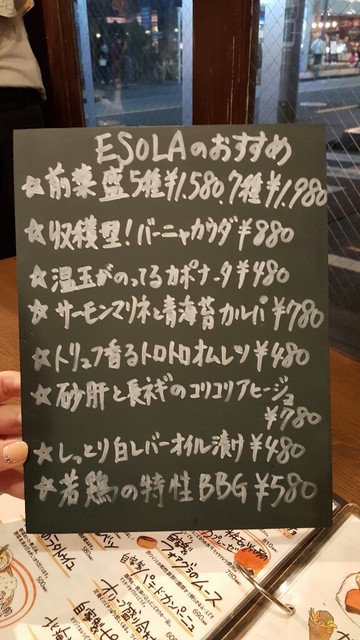 ESOLAのおすすめ
☆前菜盛5種¥1.580.7種¥1.980
☆収穫型!バーニャカウダ¥880
☆温玉がのってるカポナータ¥480
☆サーモンマリネと青海苔カルパ¥780
☆トリュフ香るトロトロオムレツ¥480
☆砂肝と長ネギのコリコリアヒージョ
¥780
☆しっとり白レバーオイル漬け¥480
☆若鶏の特性BBG¥580
自家製
フォアグラのムース
自家製
パテドカンパーニュ